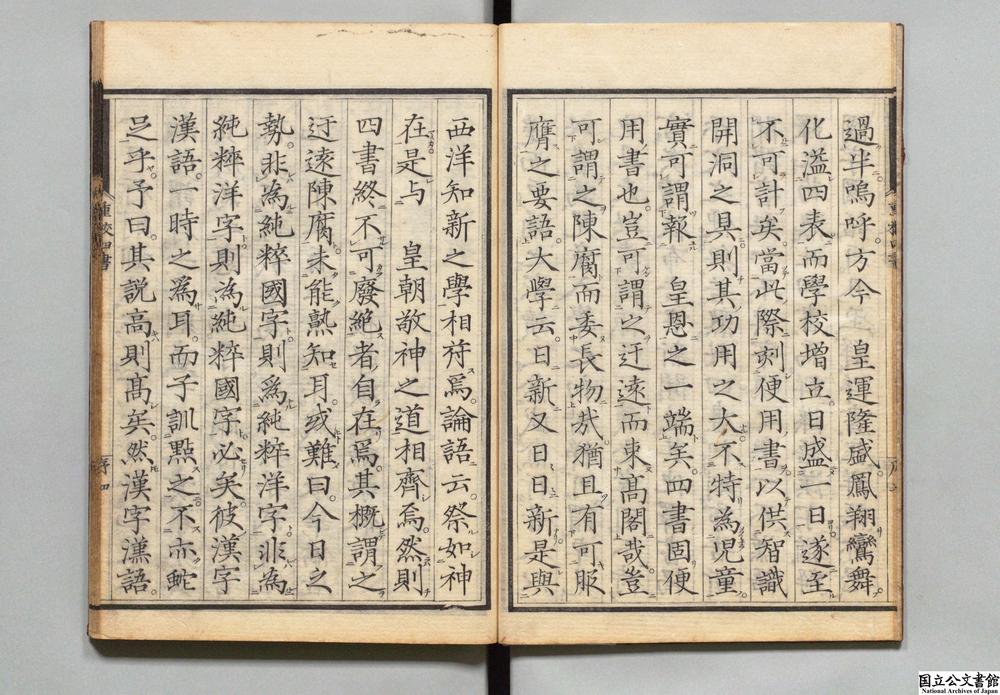 過半嗚呼方今　皇運隆盛鳳翔鸞舞
化溢四表而學校增立日盛一日遂至
不可計矣當此際刻便用書以供智識
開洞之具則其功用之大不特為児童
實可謂報　皇恩之一端矣四書固便
用書也豈可謂之迂遠而束高閣哉豈
可謂之陳腐而委長物哉猶且有可服
膺之要語大學云日新又日日新是與
西洋知新之學相符焉論語云祭如神
在是与　皇朝敬神之道相齊焉然則
四書終不可廢絶者自在焉其概謂之
迂遠陳腐未能熟知耳或難曰今日之
勢非為純粹國字則為純粹洋字非為
純粹洋字則為純粹國字必矣彼漢字
漢語一時之為耳而子訓點之不亦蛇
足乎予曰其説高則髙矣然漢字漢語
序四
国立公文書館
National Archives of Japan